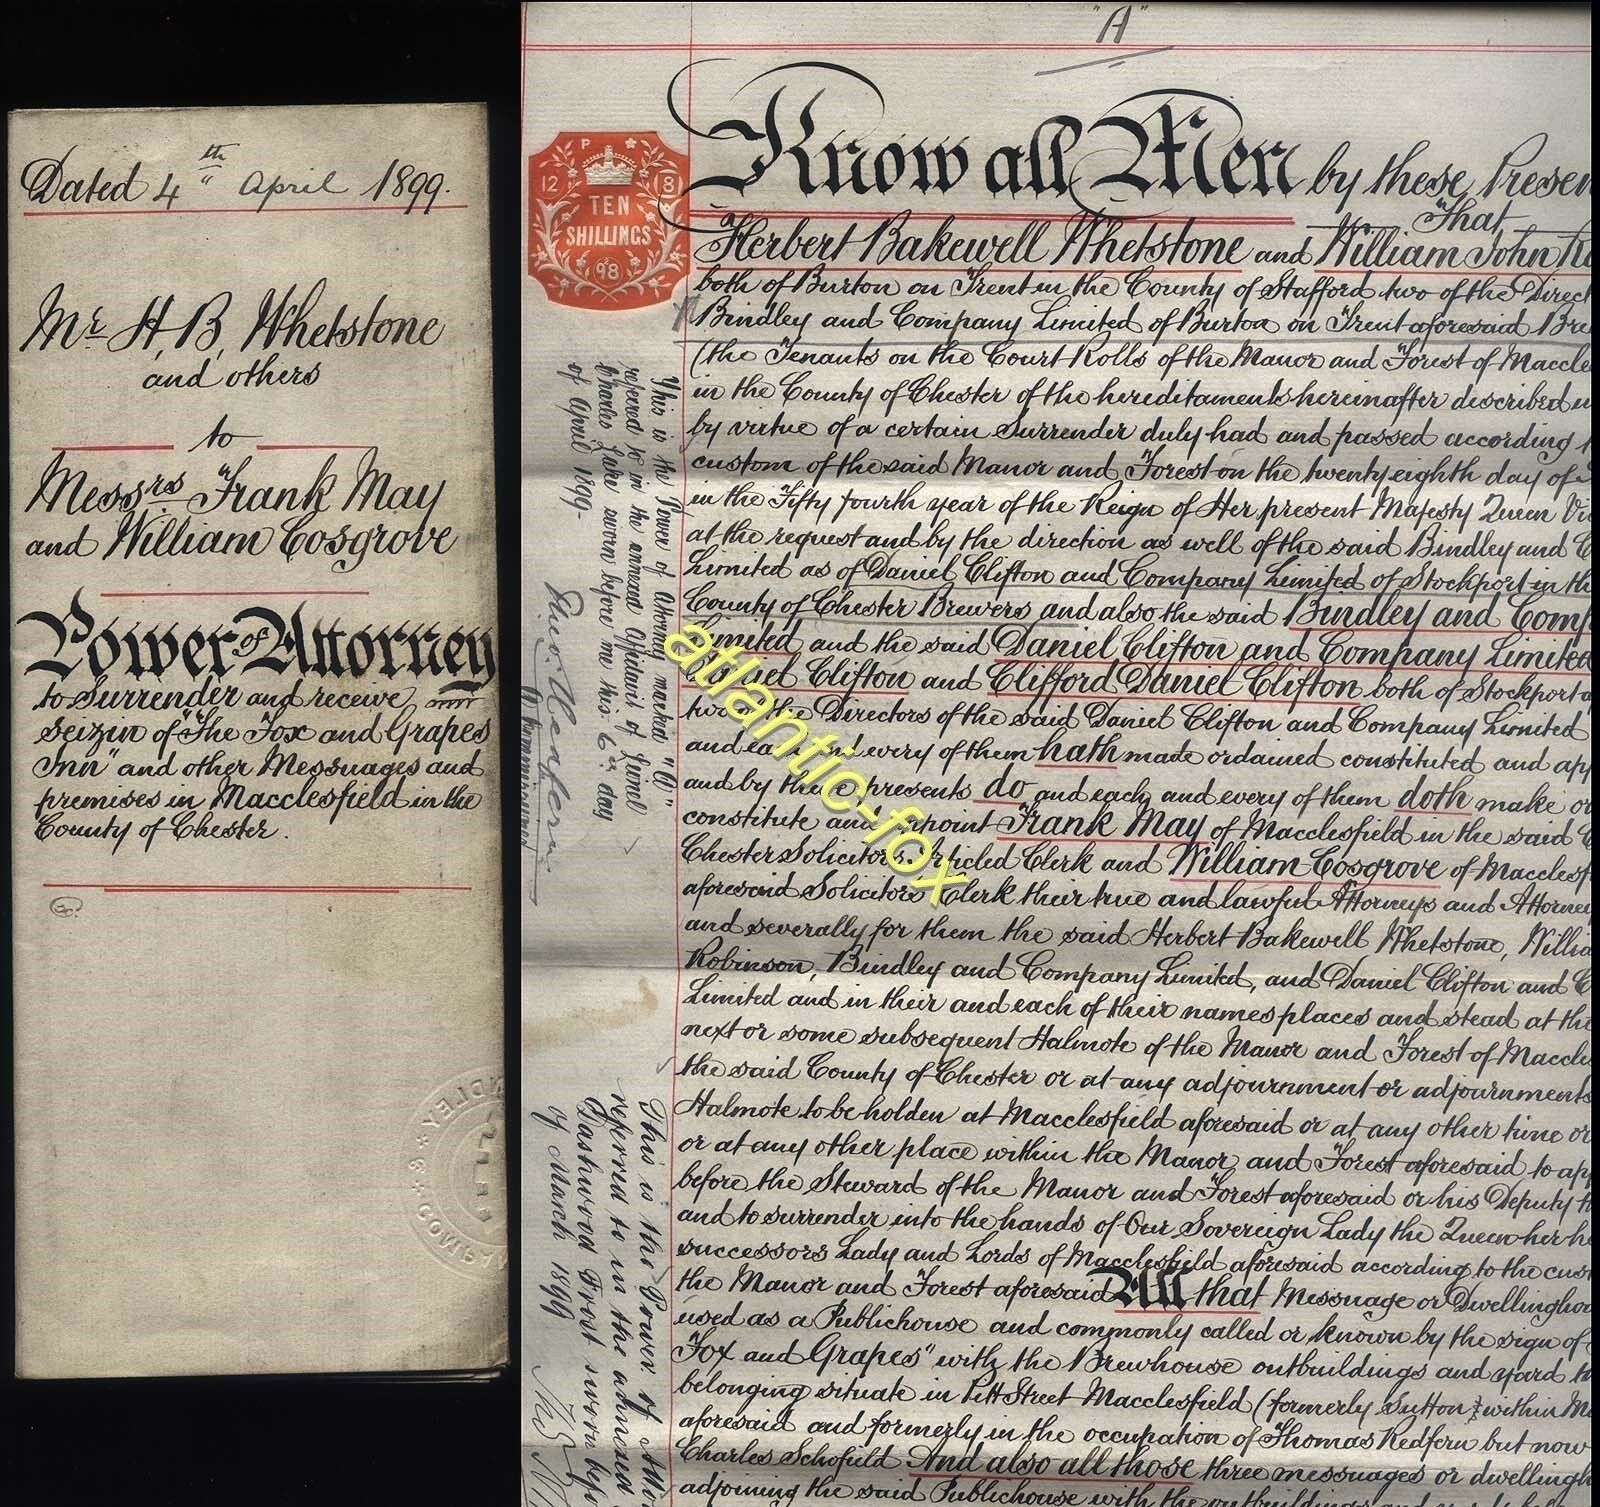 Dated 4th April 1899.
Mr. H. B. Whetstone
and others
to
Messrs Frank May
and William Cosgrove
Power of Attorney
to Surrender and receive
seizin of "The Fox and Grapes
Inn" and other Messuages and
premises in Macclesfield in the
County of Chester.
"A"
P
12 8
TEN
SHILLINGS
98
Know all Men by these Presen
That
Herbert Bakewell Whetstone and William John R
both of Burton on Trent in the County of Stafford two of the Direct
Bindley and Company Limited of Burton on Trent aforesaid Bre
(the Tenants on the Court Rolls of the Manor and Forest of Maccle
in the County of Chester of the hereditaments hereinafter described
by virtue of a certain Surrender duly had and passed according
custom of the said Manor and Forest on the twenty eighth day of
in the Fifty fourth year of the Reign of Her present Majesty Queen Vi
at the request and by the direction as well of the said Bindley and C
Limited as of Daniel Clifton and Company Limited of Stockport in th
County of Chester Brewers and also the said Bindley and Comp
Limited and the said Daniel Clifton and Company Limited
Daniel Clifton and Clifford Daniel Clifton both of Stockport a
two of the Directors of the said Daniel Clifton and Company Limited
and each and every of them hath made ordained constituted and ap
and by these presents do and each and every of them doth make or
constitute and appoint Frank May of Macclesfield in the said C
Chester Solicitors Articled Clerk and William Cosgrove of Macclesf
aforesaid Solicitors Clerk their true and lawful Attorneys and Attorne
and severally for them the said Herbert Bakewell Whetstone, Willia
Robinson, Bindley and Company Limited, and Daniel Clifton and C
Limited and in their and each of their names places and stead at the
next or some subsequent Halmote of the Manor and Forest of Maccle
the said County of Chester or at any adjournment or adjournments
Halmote to be holden at Macclesfield aforesaid or at any other time or
or at any other place within the Manor and Forest aforesaid to ap
before the Steward of the Manor and Forest aforesaid or his Deputy th
and to surrender into the hands of Our Sovereign Lady the Queen her he
successors Lady and Lords of Macclesfield aforesaid according to the cust
the Manor and Forest aforesaid All that Messuage or Dwellinghou
used as a Publichouse and commonly called or known by the sign of
Fox and Grapes" with the Brewhouse outbuildings and yard t
belonging situate in Pitt Street Macclesfield (formerly Sutton) within M
aforesaid and formerly in the occupation of Thomas Redfern but now
Charles Schofield And also all those three messuages or dwellingh
adjoining the said Publichouse with the outbuildings and
This is the Power of Attorney marked "A"
referred to in the annexed Affidavit of Lionel
Charles Lake sworn before me this 6th day
of April 1899-
This is the Power of Atto
referred to in the annexed
Dashwood Frost sworn befo
of March 1899
atlantic-fox